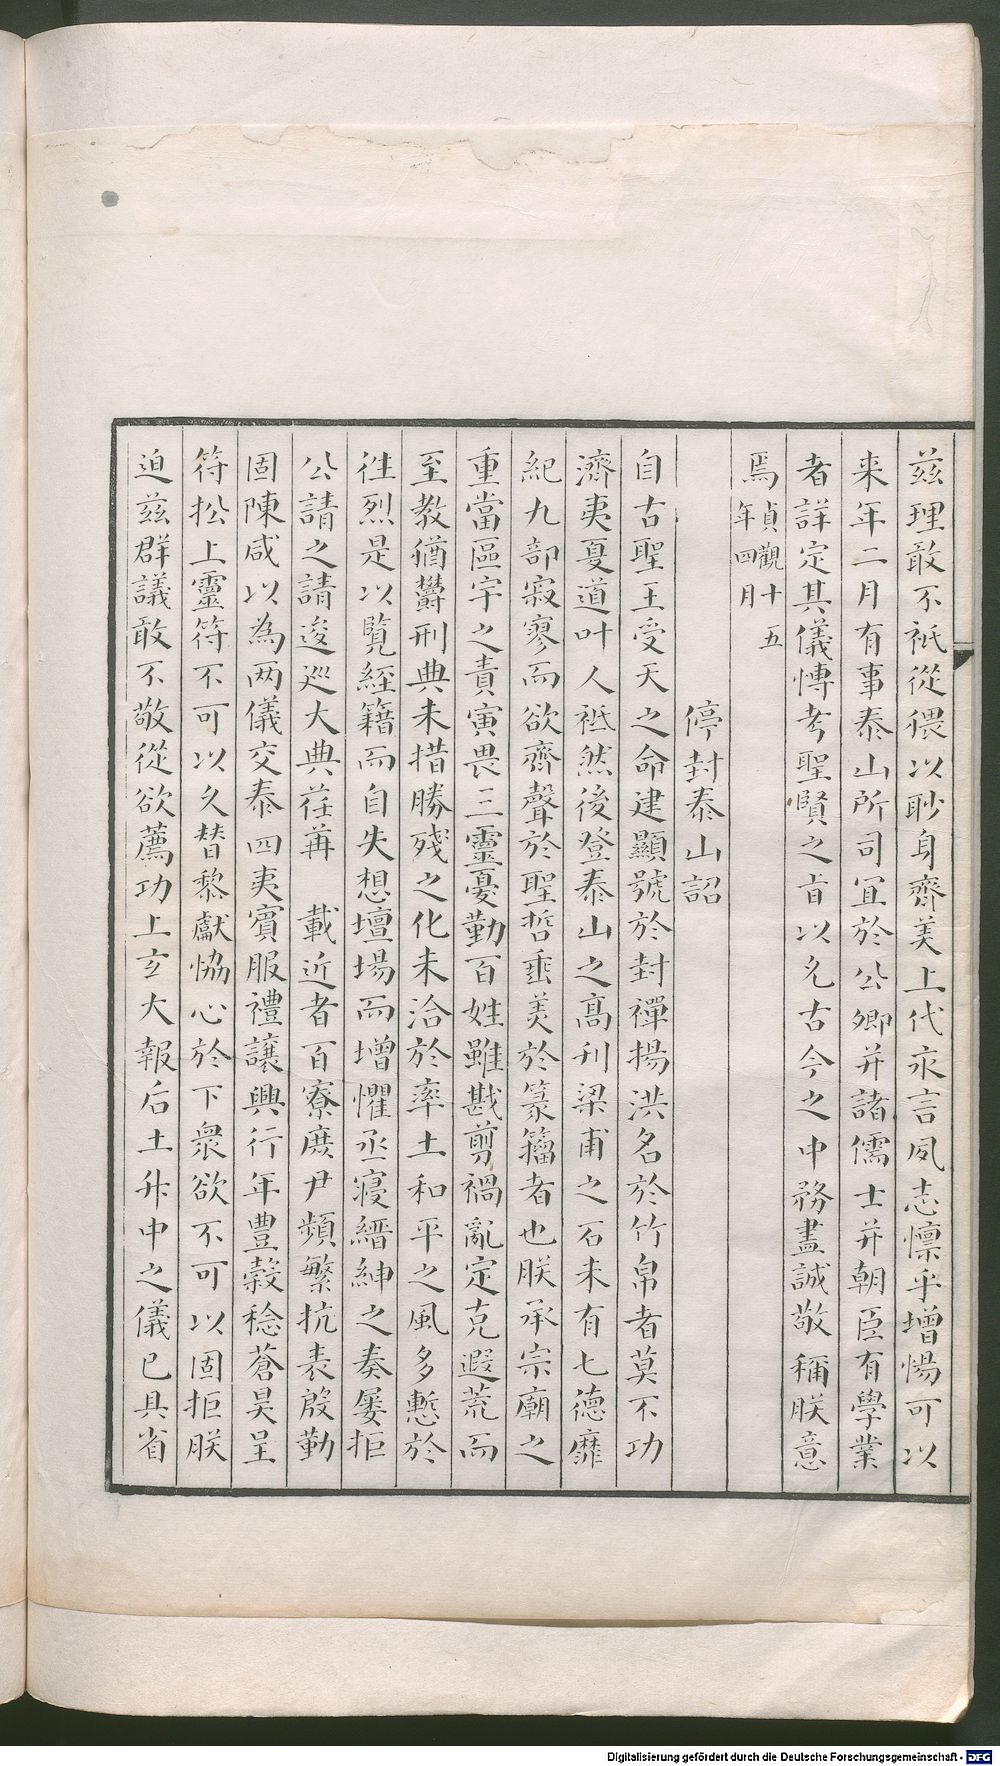 茲理敢不祗從猥以眇身齊美上代永言夙志懍乎增惕可以
来年二月有事泰山所司宜於公卿并諸儒士并朝臣有學業
者詳定其儀愽考聖賢之旨以允古今之中務盡誠敬稱朕意
焉貞觀十五年四月
停封泰山詔
自古聖王受天之命建顯號於封禪揚洪名於竹帛者莫不功
濟夷夏道叶人祗然後登泰山之髙刊梁甫之石未有七德靡
紀九部寂寥而欲齊聲於聖哲垂美於篆籀者也朕承宗廟之
重當區宇之責寅畏三靈憂勤百姓雖戡剪禍亂定克遐荒而
至教猶欝刑典未措勝殘之化未洽於率土和平之風多慙於
徃烈是以覧經籍而自失想壇場而增懼丞寝縉紳之奏屢拒
公請之請逡巡大典荏苒 載近者百寮庶尹頻繁抗表殷勤
固陳咸以為两儀交泰四夷賓服禮讓興行年豐穀稔蒼昊呈
符松上靈符不可以久替黎獻恊心於下衆欲不可以固拒朕
迫茲群議敢不敬從欲薦功上玄大報后土升中之儀已具省
Digitalisierung gefördert durch die Deutsche Forschungsgemeinschaft - DFG